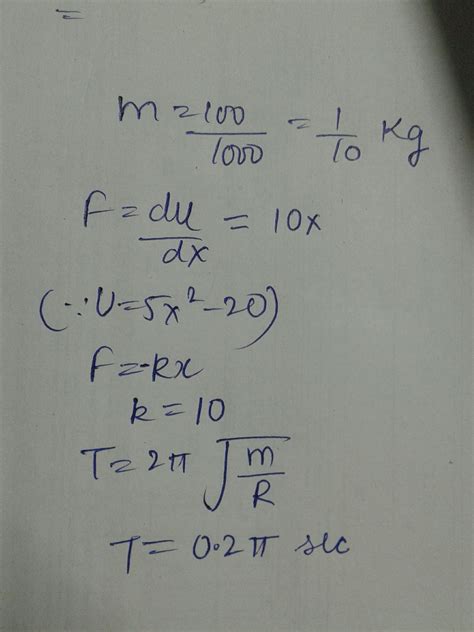 =
m = 100/1000 = 1/10 Kg
F = du/dx = 10x
(∵ U = 5x² - 20)
F = -kx
k = 10
T = 2π √(m/k)
T = 0.2π sec